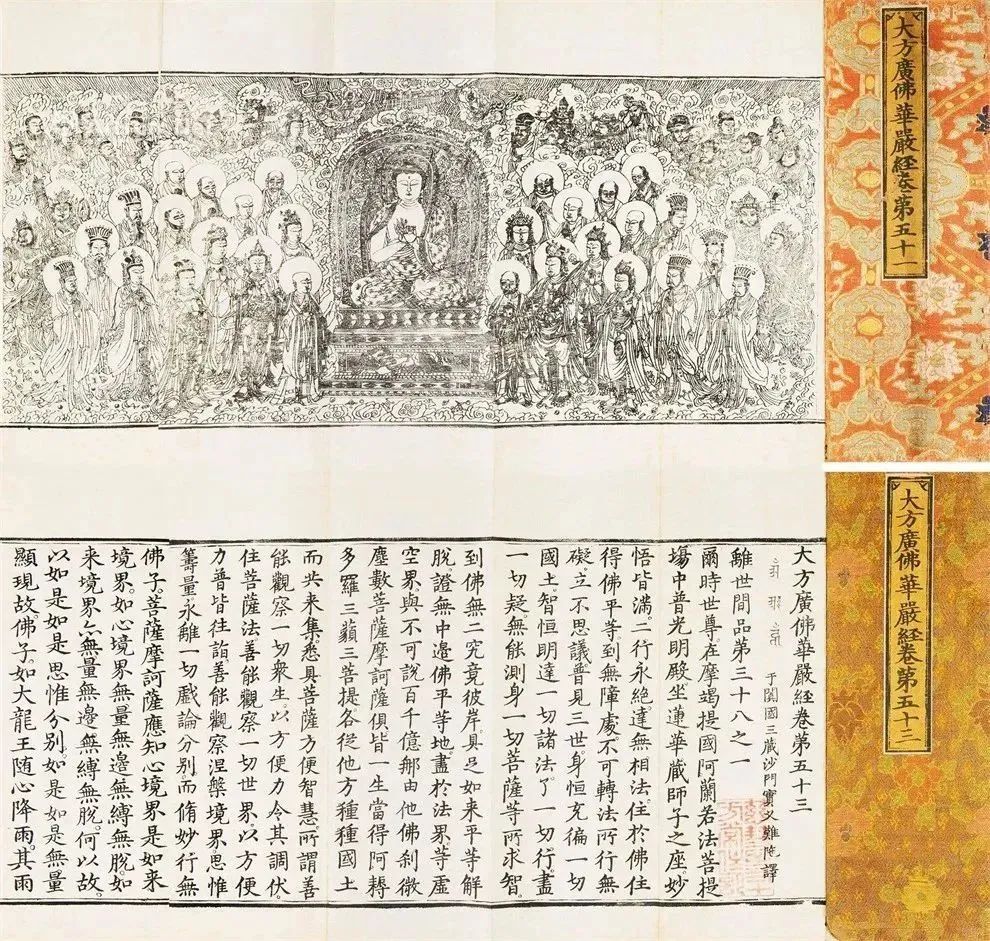 大方廣佛華嚴經卷第五十一
大方廣佛華嚴經卷第五十三
大方廣佛華嚴經卷第五十三
于闐國三藏沙門實叉難陁譯
離世間品第三十八之一
爾時世尊。在摩竭提國阿蘭若法菩提
場中普光明殿。坐蓮華藏師子之座。妙
悟皆滿。二行永絕。達無相法。住於佛住。
得佛平等。到無障處。不可轉法。所行無
礙。立不思議。普見三世。身恒充徧一切
國土。智恒明達一切諸法。了一切行。盡
一切疑。無能測身。一切菩薩等所求智。
到佛無二究竟彼岸。具足如来平等解
脫。證無中邊佛平等地。盡於法界。等虛
空界。與不可說百千億那由他佛刹微
塵數菩薩摩訶薩俱。皆一生當得阿耨
多羅三藐三菩提。各從他方種種國土
而共来集。悉具菩薩方便智慧。所謂善
能觀察一切衆生。以方便力令其調伏。
住菩薩法。善能觀察一切世界。以方便
力普皆往詣。善能觀察涅槃境界。思惟
籌量。永離一切戲論分別。而脩妙行無
佛子。菩薩摩訶薩應知心境界是如来
境界。如心境界無量無邊無縛無脫。如
来境界亦無量無邊無縛無脫。何以故。
以如是如是思惟分別。如是如是無量
顯現故。佛子。如大龍王随心降雨。其雨